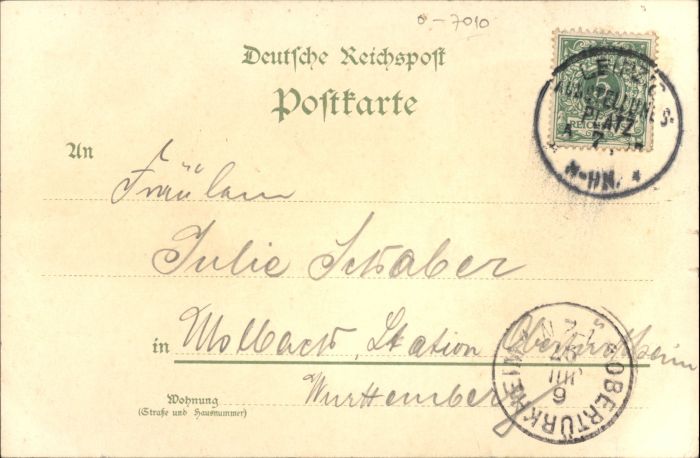 0-7010
Deutsche Reichspost
Postkarte
LEIPZIG
AUSSTELLUNGS-
PLATZ
7
N-HN.
An
Fräulein
Julie Schaber
in
Station Obertürkheim
Württemberg
Wohnung
(Straße und Hausnummer)
OBERTÜRKHEIM
9
JUL